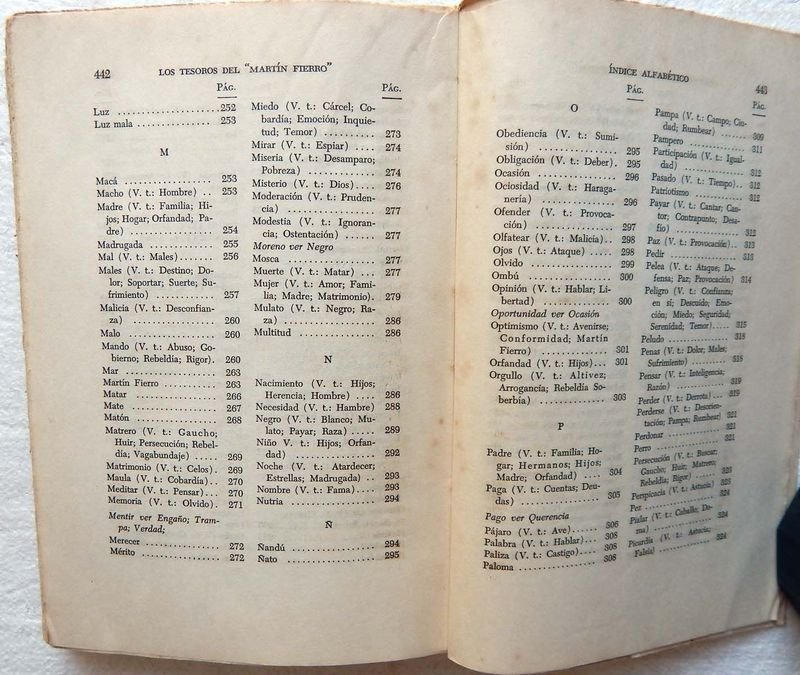 442
LOS TESOROS DEL "MARTÍN FIERRO"
PÁG.
Luz .................. 252
Luz mala ............... 253
M
Macá ................ 253
Macho (V. t.: Hombre) .. 253
Madre (V. t.: Familia; Hi-
jos; Hogar; Orfandad; Pa-
dre) ................ 254
Madrugada ............ 255
Mal (V. t.: Males) ...... 256
Males (V. t.: Destino; Do-
lor; Soportar; Suerte; Su-
frimiento) ............ 257
Malicia (V. t.: Desconfian-
za) ................. 260
Malo ................ 260
Mando (V. t.: Abuso; Go-
bierno; Rebeldía; Rigor). 260
Mar ................. 263
Martín Fierro .......... 263
Matar ............... 266
Mate ................ 267
Matón ............... 268
Matrero (V. t.: Gaucho;
Huir; Persecución; Rebel-
día; Vagabundaje) ..... 269
Matrimonio (V. t.: Celos). 269
Maula (V. t.: Cobardía) .. 270
Meditar (V. t.: Pensar)... 270
Memoria (V. t.: Olvido). 271
Mentir ver Engaño; Tram-
pa; Verdad;
Merecer .............. 272
Mérito ............... 272
PÁG.
Miedo (V. t.: Cárcel; Co-
bardía; Emoción; Inquie-
tud; Temor) .......... 273
Mirar (V. t.: Espiar) .... 274
Miseria (V. t.: Desamparo;
Pobreza) ............. 274
Misterio (V. t.: Dios).... 276
Moderación (V. t.: Pruden-
cia) ................. 277
Modestia (V. t.: Ignoran-
cia; Ostentación) ...... 277
Moreno ver Negro
Mosca ............... 277
Muerte (V. t.: Matar) ... 277
Mujer (V. t.: Amor; Fami-
lia; Madre; Matrimonio). 279
Mulato (V. t.: Negro; Ra-
za) ................. 286
Multitud ............. 286
N
Nacimiento (V. t.: Hijos;
Herencia; Hombre) .... 286
Necesidad (V. t.: Hambre) 288
Negro (V. t.: Blanco; Mu-
lato; Payar; Raza) ..... 289
Niño V. t.: Hijos; Orfan-
dad) ................ 292
Noche (V. t.: Atardecer;
Estrellas; Madrugada) .. 293
Nombre (V. t.: Fama).... 293
Nutria ............... 294
Ñ
Ñandú ............... 294
Ñato ................ 295
ÍNDICE ALFABÉTICO
443
PÁG.
O
Obediencia (V. t.: Sumi-
sión) ................ 295
Obligación (V. t.: Deber). 295
Ocasión .............. 296
Ociosidad (V. t.: Haraga-
nería) ............... 296
Ofender (V. t.: Provoca-
ción) ................ 297
Olfatear (V. t.: Malicia).. 298
Ojos (V. t.: Ataque) ..... 298
Olvido ............... 299
Ombú ................ 300
Opinión (V. t.: Hablar; Li-
bertad) .............. 300
Oportunidad ver Ocasión
Optimismo (V. t.: Avenirse;
Conformidad; Martín
Fierro) .............. 301
Orfandad (V. t.: Hijos)... 301
Orgullo (V. t.: Altivez;
Arrogancia; Rebeldía So-
berbia) .............. 303
P
Padre (V. t.: Familia; Ho-
gar; Hermanos; Hijos;
Madre; Orfandad) .... 304
Paga (V. t.: Cuentas; Deu-
das) ................. 305
Pago ver Querencia
Pájaro (V. t.: Ave)..... 306
Palabra (V. t.: Hablar)... 308
Paliza (V. t.: Castigo).... 308
Paloma ............... 308
PÁG.
Pampa (V. t.: Campo; Ciu-
dad; Rumbear) ....... 309
Pampero .............. 311
Participación (V. t.: Igual-
dad) ................ 312
Pasado (V. t.: Tiempo)... 312
Patriotismo ............ 312
Payar (V. t.: Cantar; Can-
tor; Contrapunto; Desa-
fío) ................. 312
Paz (V. t.: Provocación).. 313
Pedir ................ 313
Pelea (V. t.: Ataque; De-
fensa; Paz; Provocación) 314
Peligro (V. t.: Confianza;
en sí; Descuido; Emo-
ción; Miedo; Seguridad;
Serenidad; Temor)..... 315
Peludo ............... 318
Penas (V. t.: Dolor; Males;
Sufrimiento) .......... 318
Pensar (V. t.: Inteligencia;
Razón) .............. 319
Perder (V. t.: Derrota)... 319
Perderse (V. t.: Desorien-
tación; Pampa; Rumbear) 321
Perdonar ............. 321
Perro ................ 321
Persecución (V. t.: Buscar;
Gaucho; Huir; Matrero;
Rebeldía; Rigor) ...... 323
Perspicacia (V. t.: Astucia) 323
Pez .................. 324
Pialar (V. t.: Caballo; Do-
ma) ................. 324
Picardía (V. t.: Astucia;
Falsía) .............. 324